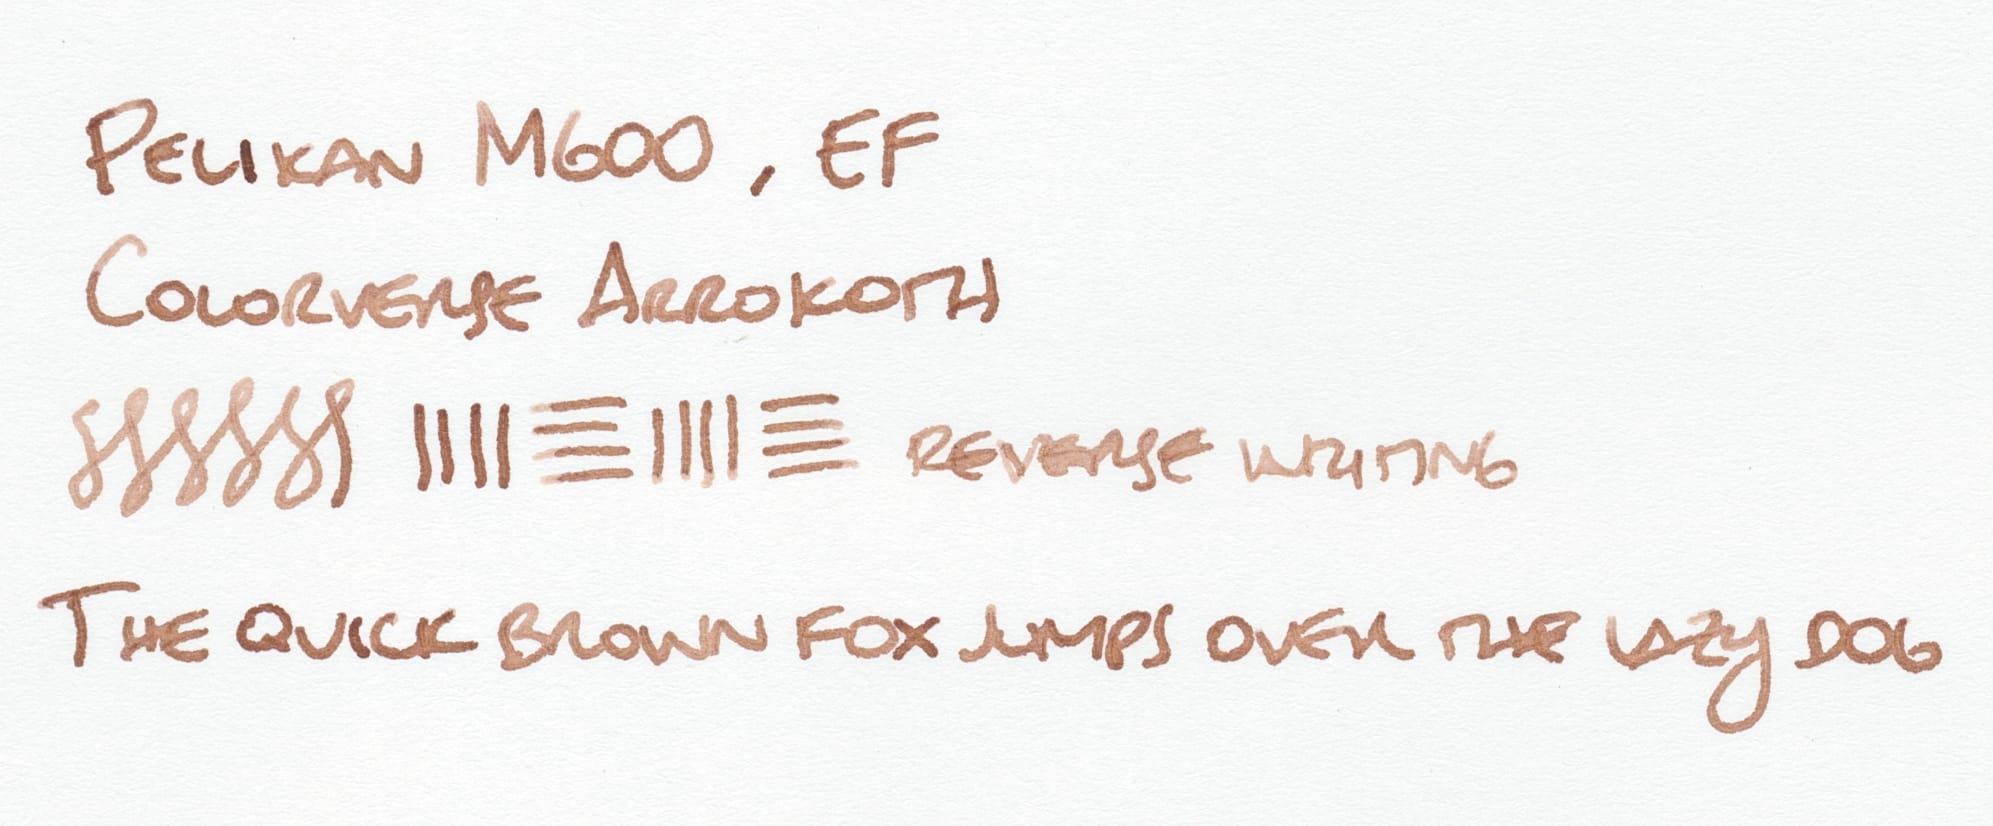 Pelikan M600, EF
Colorverse Arrokoth
Reverse writing
The quick brown fox jumps over the lazy dog